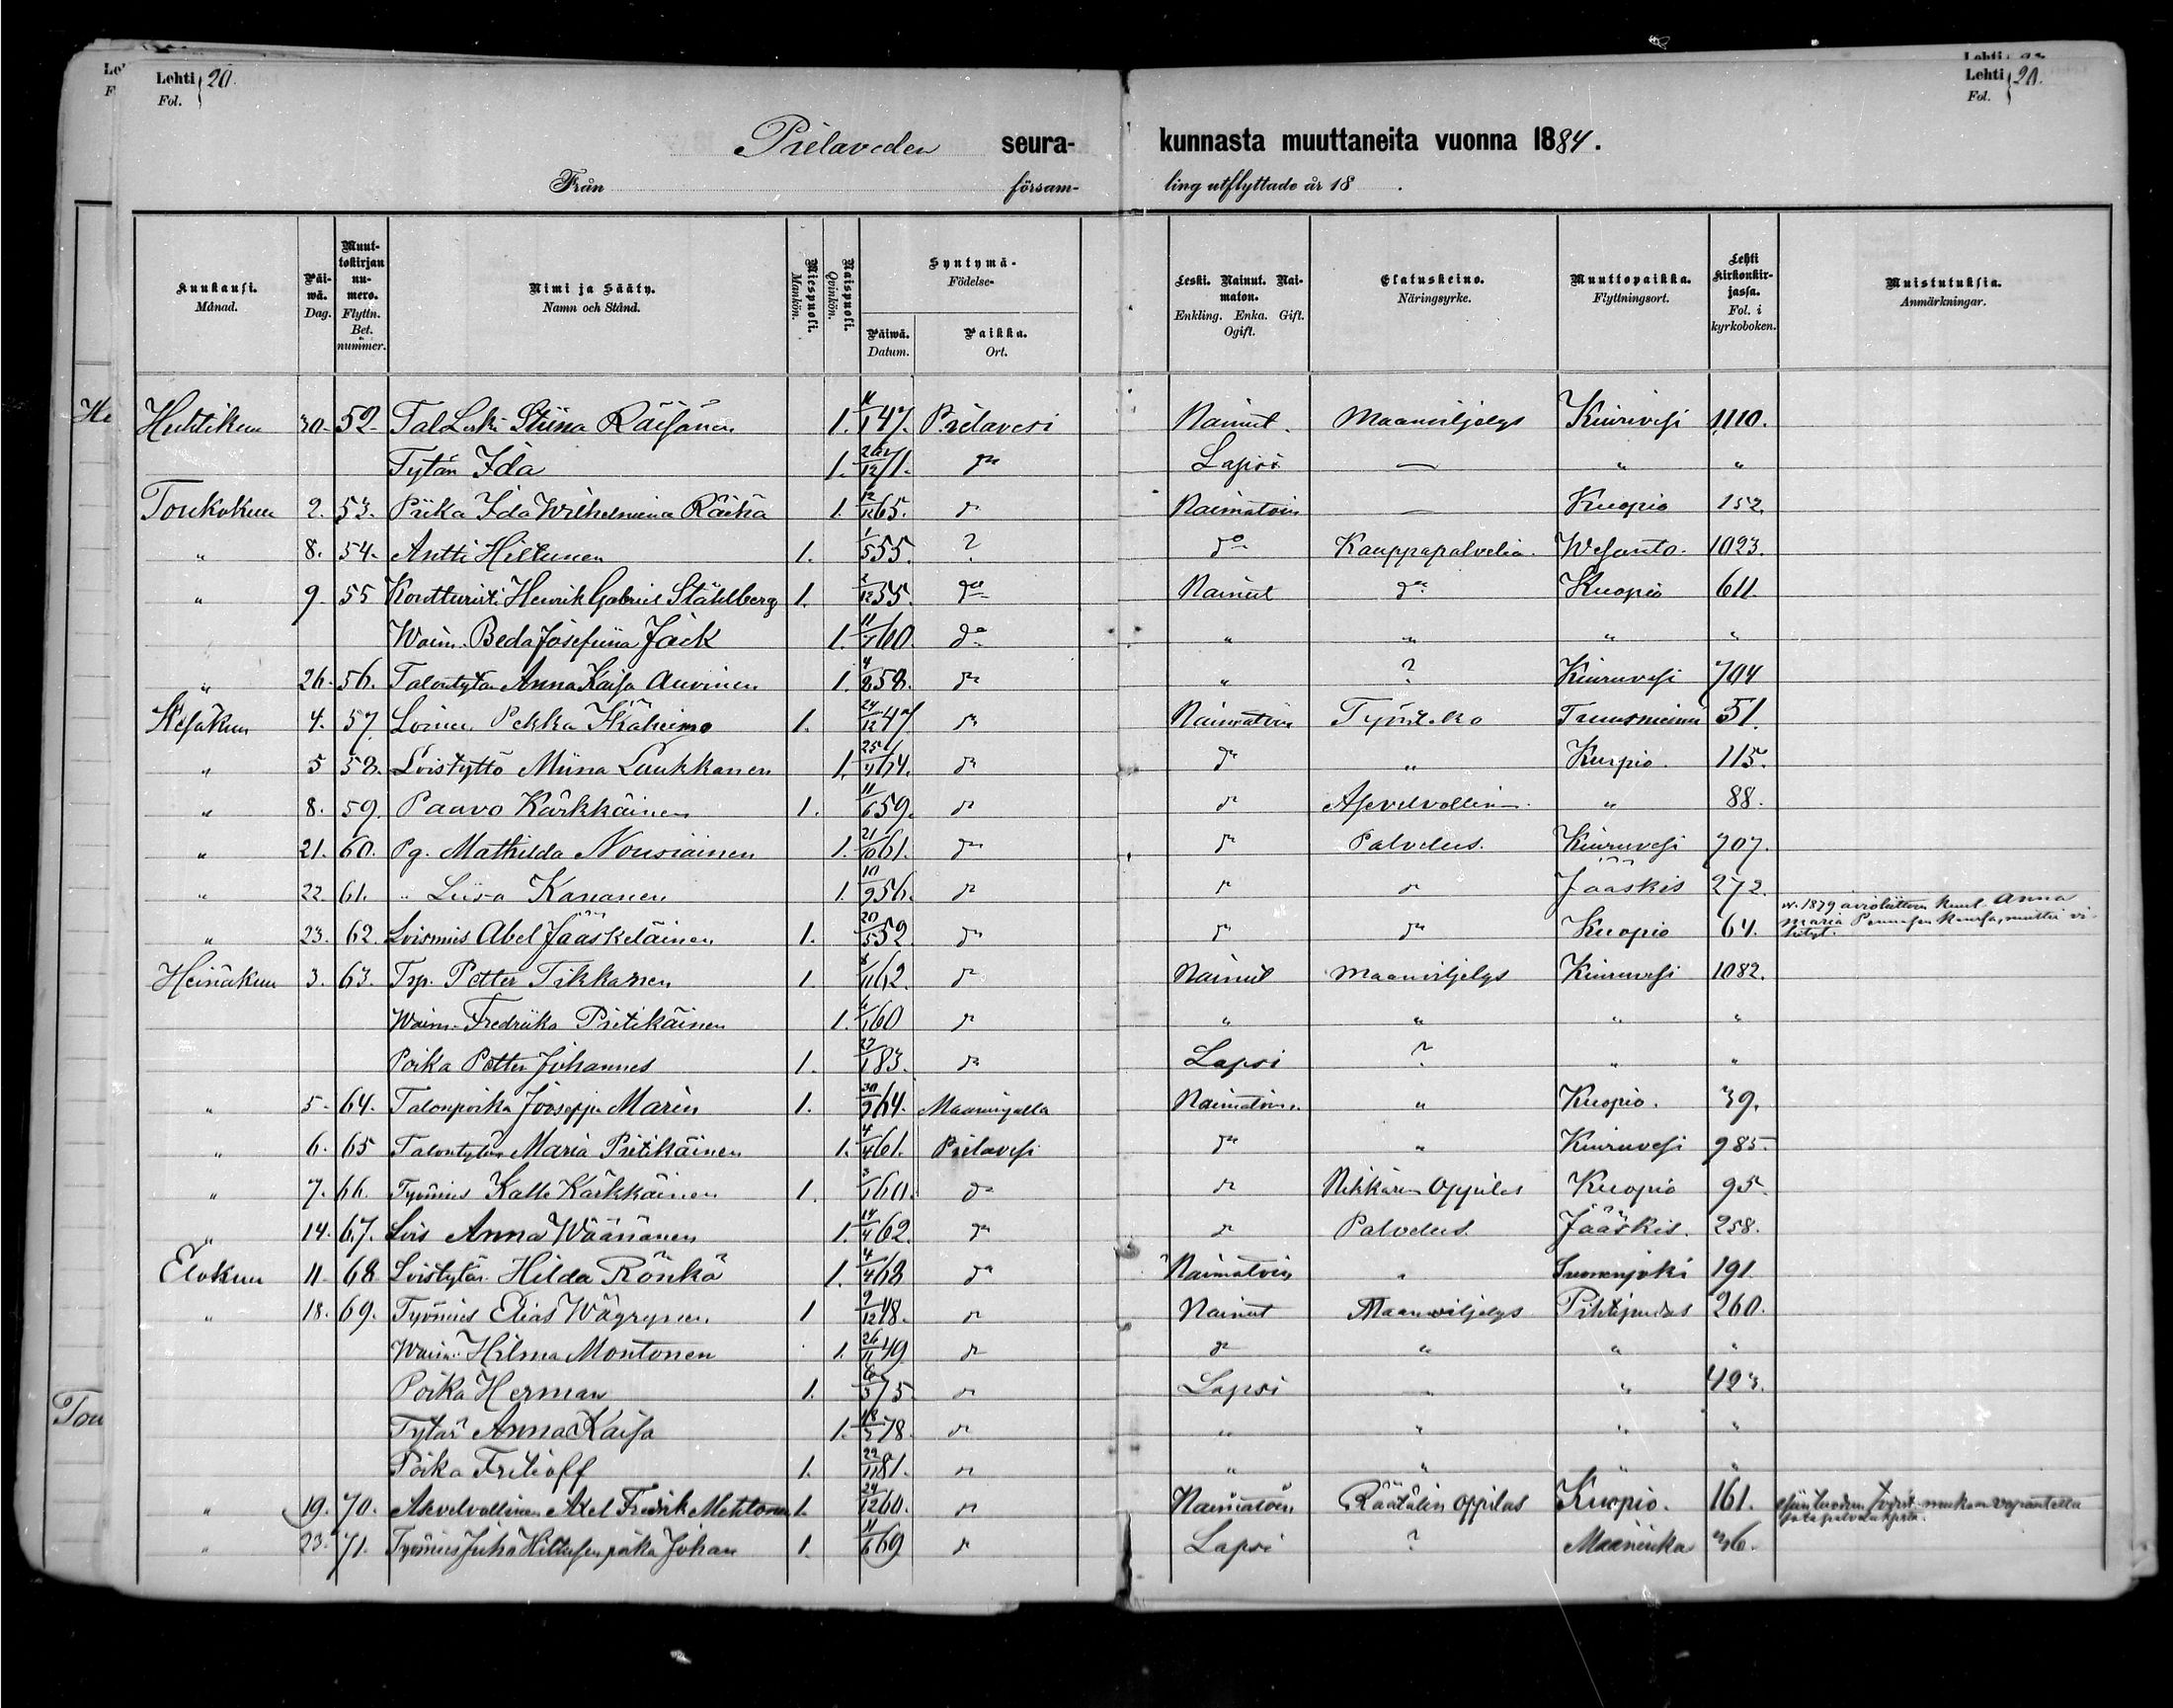 Lehti 20.
Fol.
Lehti 20.
Fol.
Pielaveden seura- kunnasta muuttaneita vuonna 1884.
Från försam- ling utflyttade år 18 .
Kuukausi. Månad. Päiwä. Dag. Muuttokirjan numero. Flyttn. Bet. nummer. Nimi ja Sääty. Namn och Stånd. Miespuoli. Mankön. Naispuoli. Qvinkön. Syntymä- Födelse- Päiwä. Datum. Paikka. Ort. Leski. Nainut. Naimaton. Enkling. Enka. Gift. Ogift. Elatuskeino. Näringsyrke. Muuttopaikka. Flyttningsort. Lehti kirkonkirjassa. Fol. i kyrkoboken. Muistutuksia. Anmärkningar.
Huhtikuu 30. 52. Tal Leski Stiina Räisänen 1. 11/1 47. Pielavesi Nainut. Maanviljelys Kiurivesi 1110.
Tytär Ida 1. 20/12 71. do Lapsi — " "
Toukokuu 2. 53. Piika Ida Wilhelmiina Räihä 1. 12/12 65. do Naimatoin — Kuopio 152.
" 8. 54. Antti Hiltunen 1. 1/5 55. ? do Kauppapalvelia. Wesanto. 1023.
" 9. 55 Kontturist. Henrik Gabriel Ståhlberg 1. 2/12 55. do Nainut do Kuopio 611.
Waim. Beda Josefiina Jäck 1. 11/1 60. do " " " "
" 26. 56. Talontytär Anna Kaisa Auvinen 1. 4/8 58. do " ? Kiuruvesi 704
Kesäkuu 4. 57. Loinen Pekka Ikäheimo 1. 24/12 47. do Naimatoin Työnteko Tuusniemi 51.
" 5 58. Loistyttö Miina Laukkanen 1. 25/4 64. do do " Kuopio. 115.
" 8. 59. Paavo Kärkkäinen 1. 11/6 59. do do Asevelvollinen. " 88.
" 21. 60. Pg. Mathilda Nousiainen 1. 21/10 61. do do Palvelus. Kiuruvesi 707.
" 22. 61. " Liisa Kananen 1. 10/9 56. do do do Jääskis 272.
" 23. 62. Loismies Abel Jääskeläinen 1. 20/5 52. do do do Kuopio 64. w. 1879 avioliittoon kuul. Anna
Maria
Heinäkuu 3. 63. Tsp. Petter Tikkanen 1. 8/11 62. do Nainut Maanviljelys Kiuruvesi 1082.
Waim. Fredriika Pietikäinen 1. 6/1 60 do " " " "
Poika Petter Johannes 1. 27/1 83. do Lapsi ? " "
" 5. 64. Talonpoika Jooseppi Marin 1. 30/9 64. Maaningalla Naimatoin. " Kuopio. 39.
" 6. 65 Talontytär Maria Pietikäinen 1. 4/4 61. Pielavesi do " Kiuruvesi 985.
" 7. 66. Työmies Kalle Kärkkäinen 1. 3/1 60. do do Nikkarin Oppilas Kuopio 95.
" 14. 67. Lois Anna Wäänänen 1. 14/4 62. do do Palvelus. Jääskis. 258.
Elokuu 11. 68 Loistytär Hilda Rönkä 1. 4/4 68 do Naimatoin " Suonenjoki 191.
" 18. 69. Työmies Elias Wägrynen 1 9/12 48. do Nainut Maanviljelys Pihtipudas 260.
Waim. Hilma Montonen 1. 26/11 49 do do " " "
Poika Herman 1. 6/3 75 do Lapsi " " 423.
Tytär Anna Kaisa 1. 18/3 78. do " " " "
Poika Fritioff 1. 22/11 81. do " " " "
" 19. 70. Asevelvollinen Axel Fredrik Mehtonen 1. 24/12 60. do Naimatoin Räätälin Oppilas Kuopio. 161.
" 23. 71. Työmies Juho Hiltusen poika Johan 1. 11/6 69 do Lapsi ? Maaninka 36.